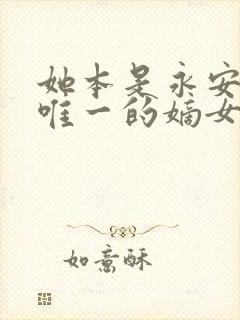 她本是永安
唯一的嫡女
如意酥